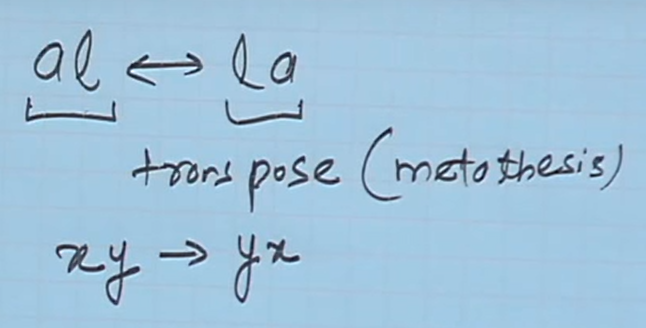 al ↔ la
transpose (metathesis)
xy → yx